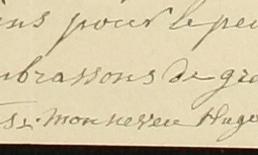 ns pour le pe
mbrassons de gr
mon neveu Huge